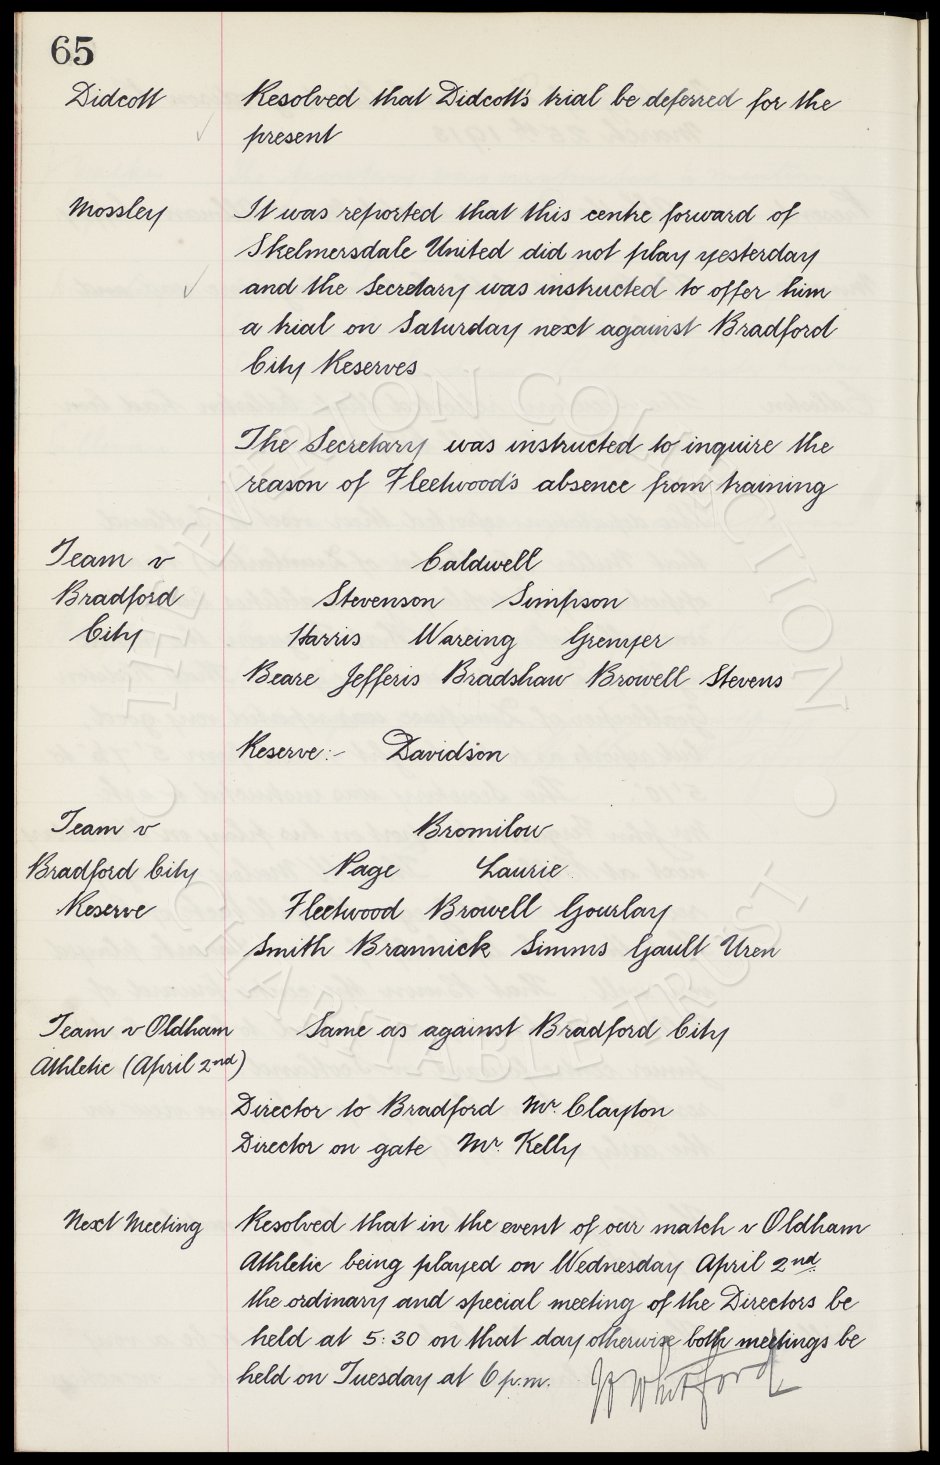 65
Didcott
Resolved that Didcott's trial be deferred for the
present
Mossley
It was reported that this centre forward of
Skelmersdale United did not play yesterday
and the Secretary was instructed to offer him
a trial on Saturday next against Bradford
City Reserves
The Secretary was instructed to inquire the
reason of Fleetwood's absence from training
Team v
Bradford
City
Caldwell
Stevenson Simpson
Harris Wareing Grenyer
Beare Jefferis Bradshaw Browell Stevens
Reserve:- Davidson
Team v
Bradford City
Reserve
Bromilow
Page Laurie
Fleetwood Browell Gourlay
Smith Brannick Simms Gault Uren
Team v Oldham
Athletic (April 2nd)
Same as against Bradford City
Director to Bradford Mr. Clayton
Director on gate Mr. Kelly
Next Meeting
Resolved that in the event of our match v Oldham
Athletic being played on Wednesday April 2nd
the ordinary and special meeting of the Directors be
held at 5:30 on that day otherwise both meetings be
held on Tuesday at 6 p.m.
W Whitford
THE EVERTON COLLECTION • CHARITABLE TRUST •